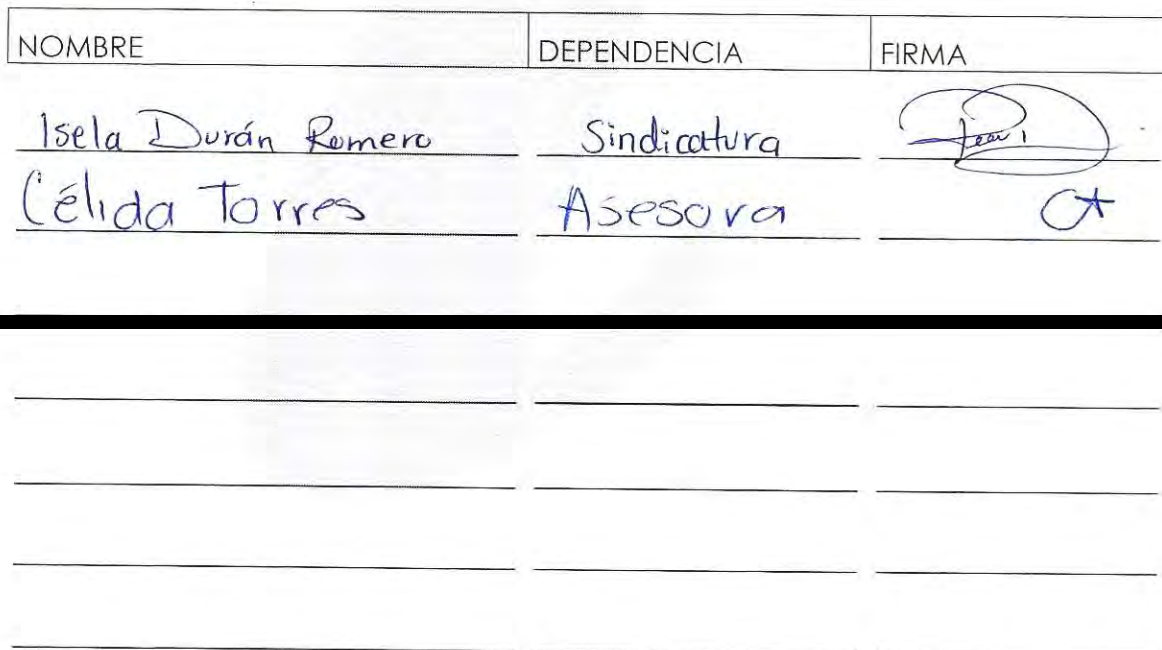 NOMBRE DEPENDENCIA FIRMA
Isela Durán Romero Sindicatura
Célida Torres Asesora